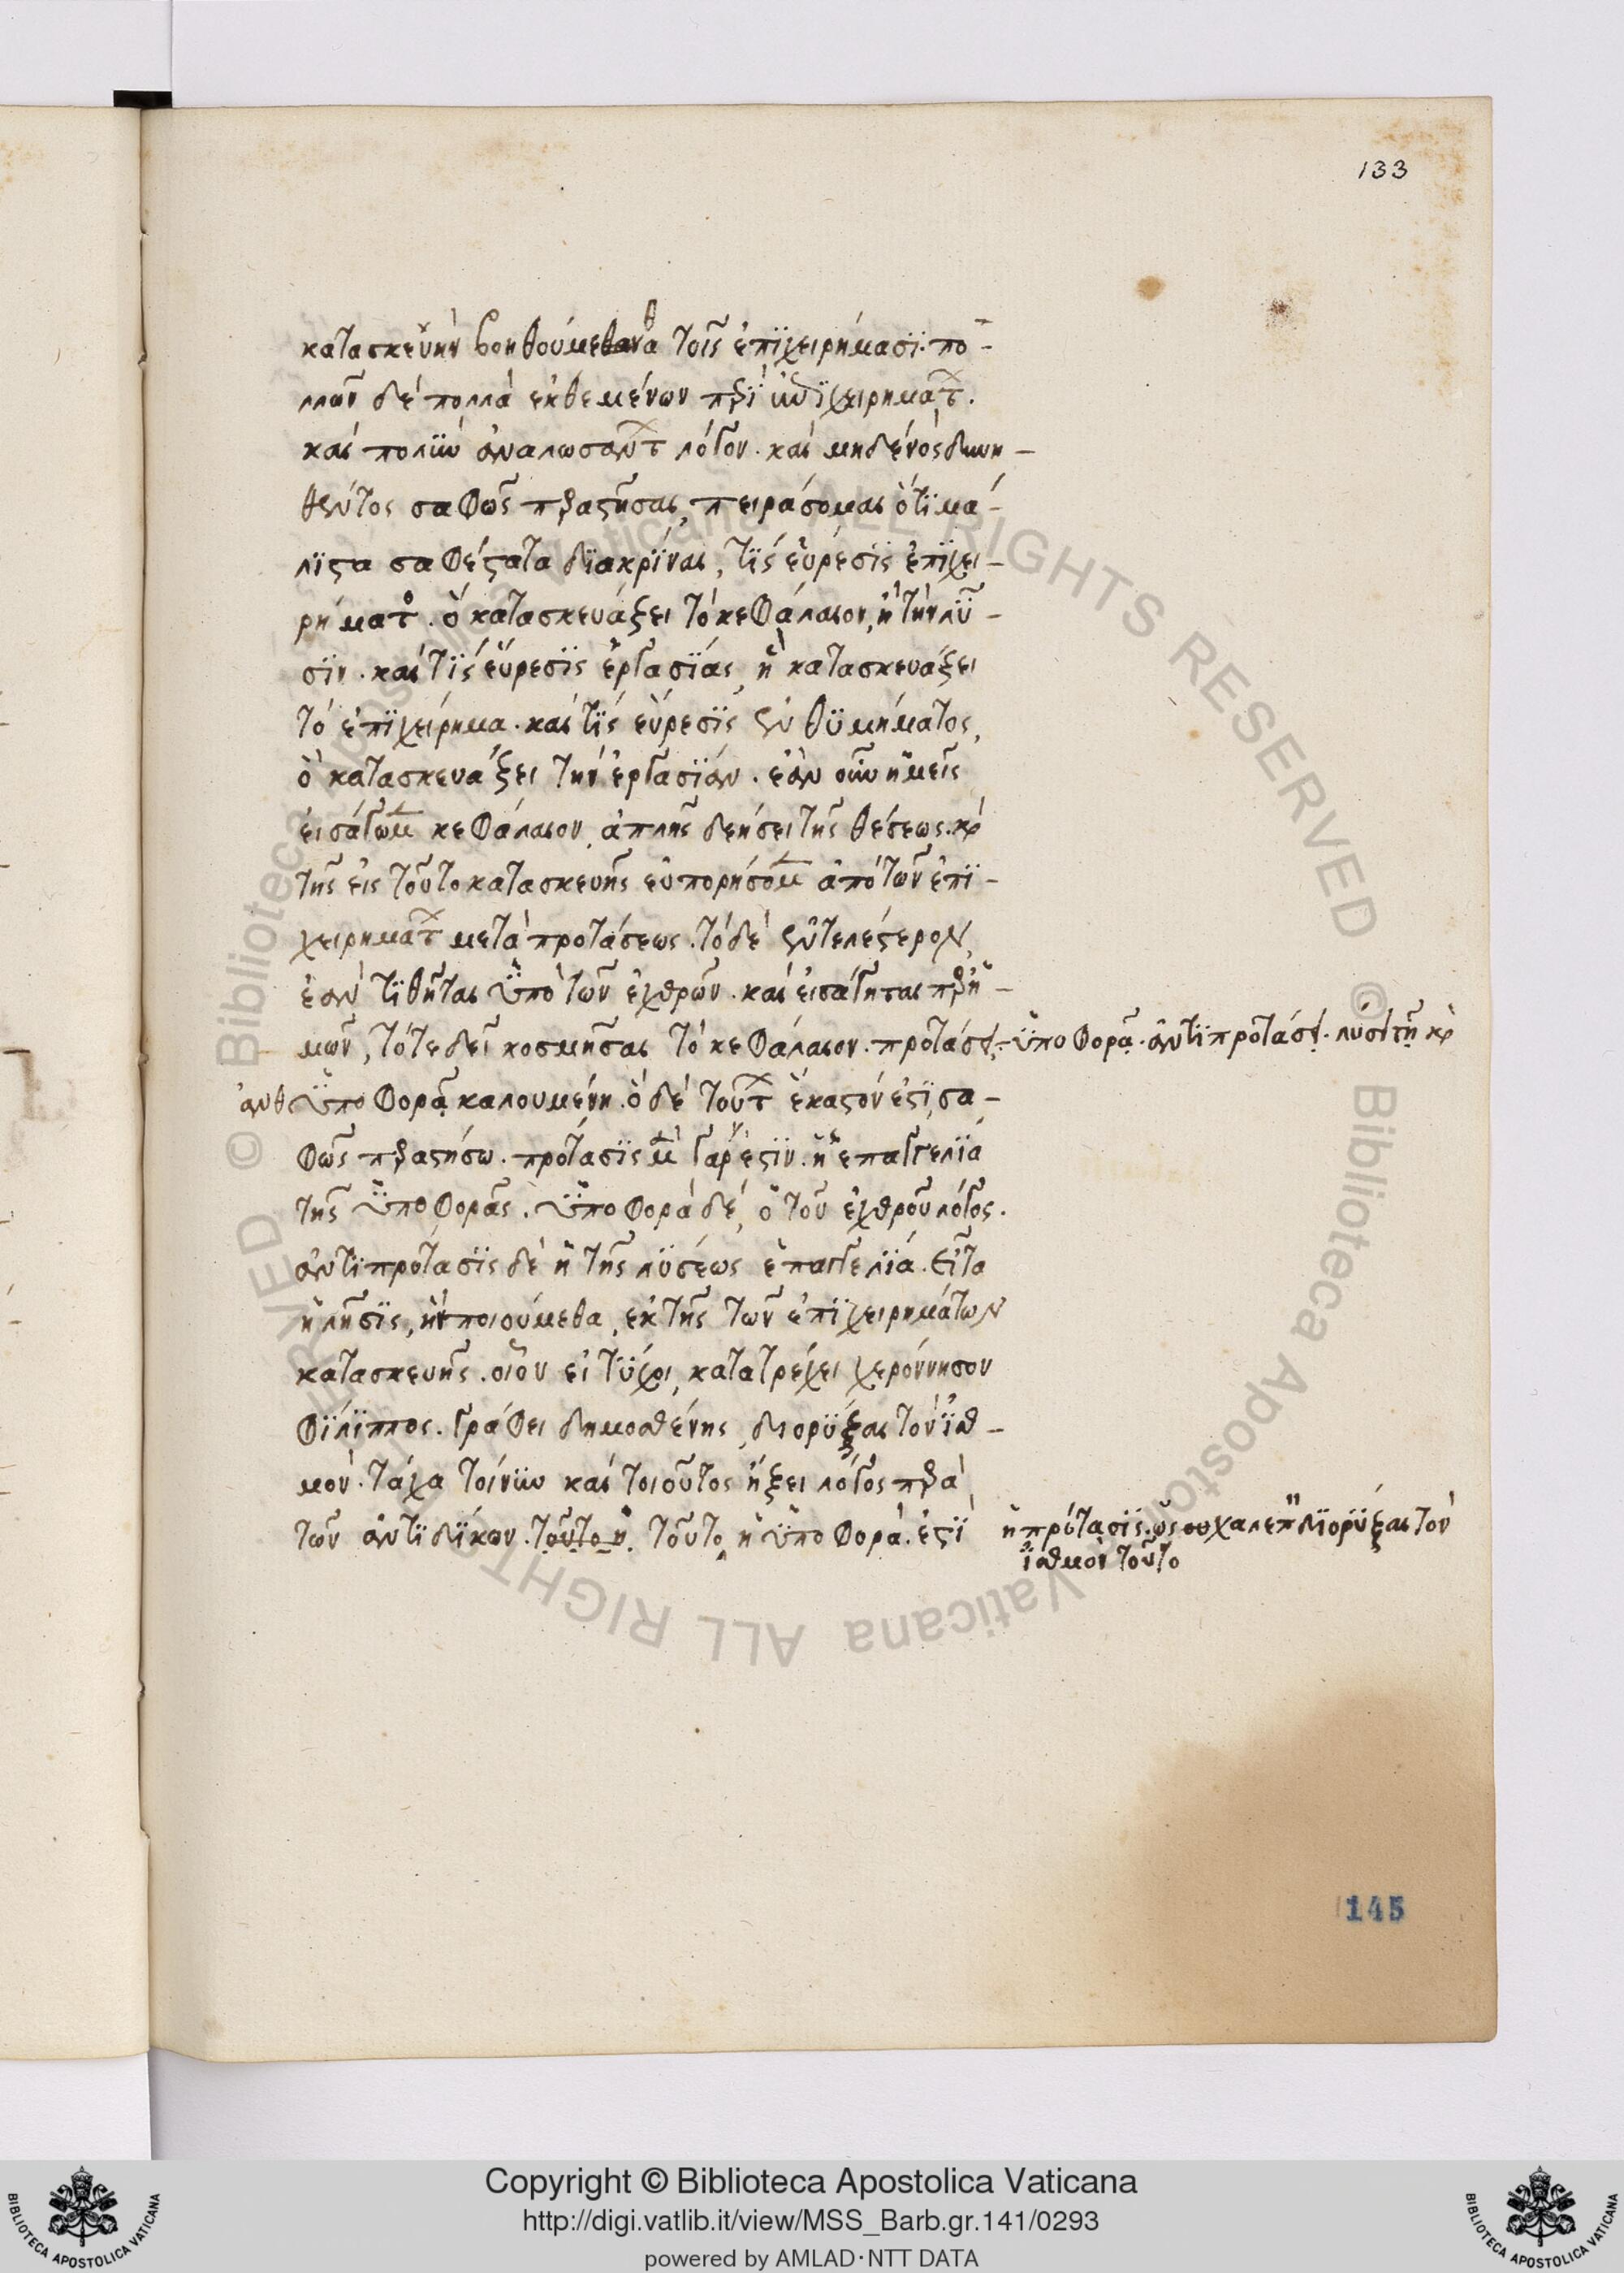 133
κατασκευὴν βοηθούμεθα τοῖς ἐπιχειρήμασι. πο-
λλῶν δὲ πολλὰ ἐκθεμένων περὶ ἐπιχειρημάτ.
καὶ πολὺν ἀναλωσάντ λόγον. καὶ μηδενὸς δυνη-
θέντος σαφῶς παραστῆσαι, πειράσομαι ὅτι μά-
λιστα σαφέστατα διακρῖναι, τίς εὕρεσις ἐπιχει-
ρήματο. ὃ κατασκευάζει τὸ κεφάλαιον, ἢ τὴν λύ-
σιν. καὶ τίς εὕρεσις ἐργασίας, ἣ κατασκευάζει
τὸ ἐπιχείρημα. καὶ τίς εὕρεσις ἐνθυμήματος,
ὃ κατασκευάζει τὴν ἐργασίαν. ἐὰν οὖν ἡμεῖς
εἰσάγωμ κεφάλαιον, ἁπλῆς δεήσει τῆς θέσεως. καὶ
τῆς εἰς τοῦτο κατασκευῆς εὐπορήσομ ἀπὸ τῶν ἐπι-
χειρημάτ μετὰ προτάσεως. τὸ δὲ ἐντελέστερον,
ἐὰν τιθῆται ὑπὸ τῶν ἐχθρῶν. καὶ εἰσάγηται παρ' ἡ-
μῶν, τότε δεῖ κοσμῆσαι τὸ κεφάλαιον. προτάσει. ὑποφορᾷ. ἀντιπροτάσει. λύσει τῇ καὶ
ἀνθυποφορᾷ καλουμένῃ. ὃ δὲ τούτ ἕκαστόν ἐστι, σα-
φῶς παραστήσω. πρότασις μὲν γάρ ἐστιν. ἡ ἐπαγγελία
τῆς ὑποφορᾶς. ὑποφορὰ δὲ, ὁ τοῦ ἐχθροῦ λόγος.
ἀντιπρότασις δὲ ἡ τῆς λύσεως ἐπαγγελία. εἶτα
ἡ λῆσις, ἣν ποιούμεθα, ἐκ τῆς τῶν ἐπιχειρημάτων
κατασκευῆς. οἷον εἰ τύχοι, κατατρέχει χερόννησον
φίλιππος. γράφει δημοσθένης, διορύξαι τὸν ἰσθ-
μόν. τάχα τοίνυν καὶ τοιοῦτος ἥξει λόγος παρὰ
τῶν ἀντιδίκων. τοῦτο ἡ τοῦτο ἡ ὑποφορά. ἐστὶ
ἡ πρότασις. ὡς χαλεπ διορύξαι τὸν
ἰσθμὸν τοῦτο
145
Copyright © Biblioteca Apostolica Vaticana
http://digi.vatlib.it/view/MSS_Barb.gr.141/0293
powered by AMLAD·NTT DATA
BIBLIOTECA APOSTOLICA VATICANA
BIBLIOTECA APOSTOLICA VATICANA
© Biblioteca Apostolica Vaticana ALL RIGHTS RESERVED © Biblioteca Apostolica Vaticana ALL RIGHTS RESERVED